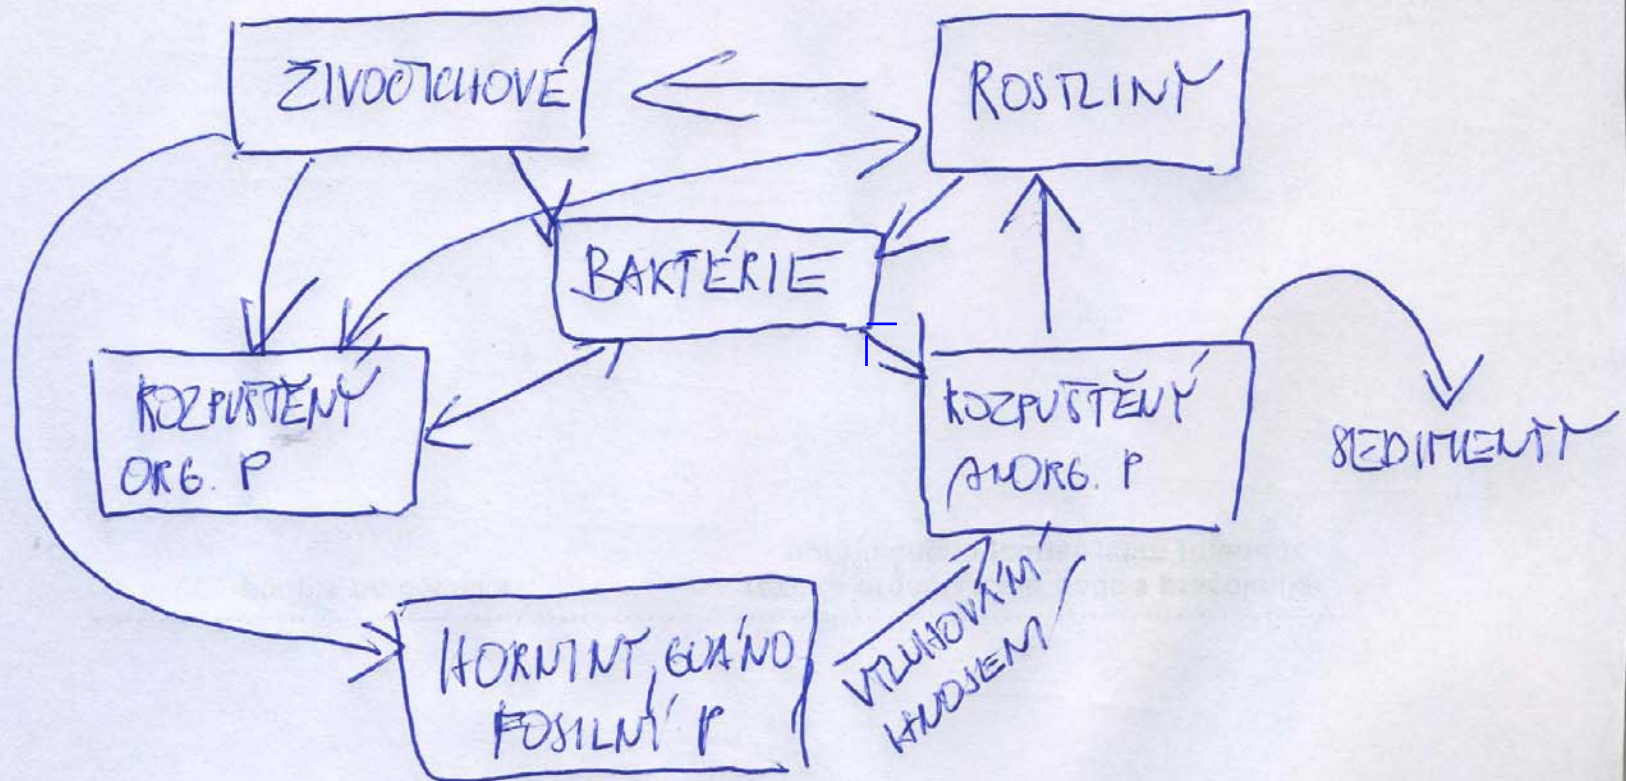 ŽIVOČICHOVÉ
ROSTLINY
BAKTÉRIE
ROZPUŠTĚNÝ
ORG. P
ROZPUŠTĚNÝ
ANORG. P
SEDIMENTY
HORNINY, GUÁNO
FOSILNÍ P
VYLUHOVÁNÍ
HNOJENÍ